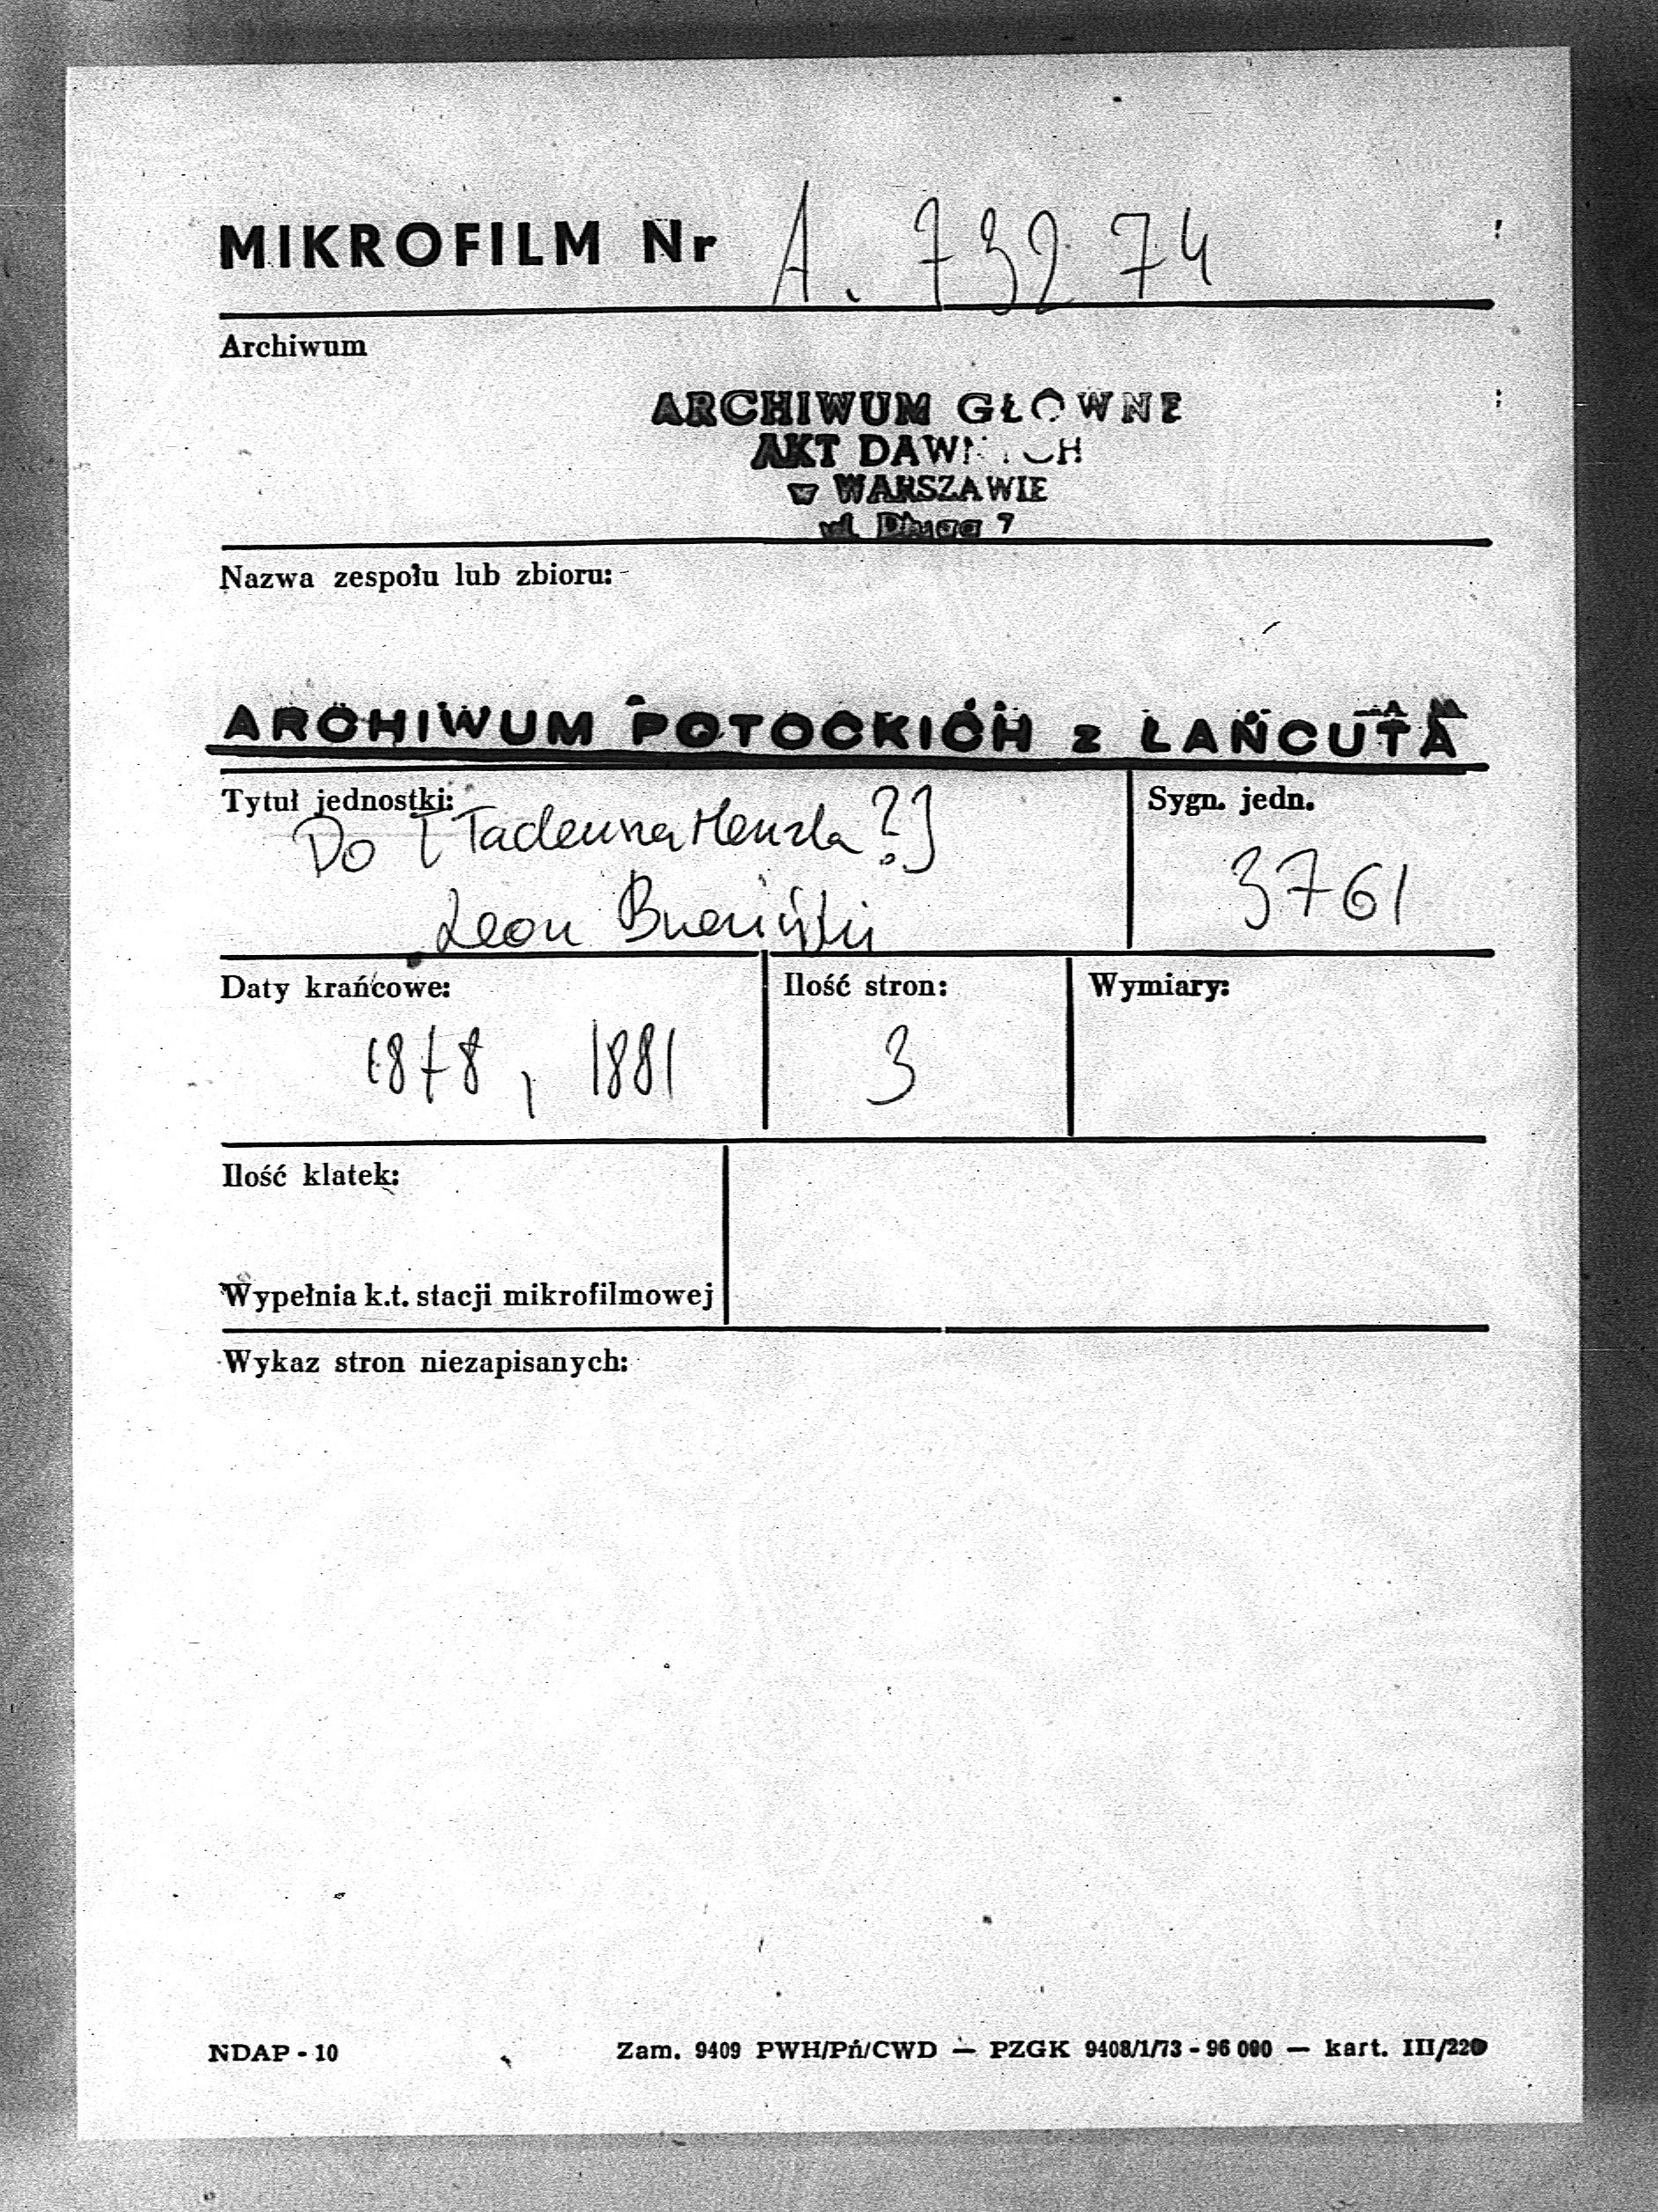 MIKROFILM Nr A. 73274
Archiwum
ARCHIWUM GŁÓWNE
AKT DAWNYCH
w WARSZAWIE
ul. Długa 7
Nazwa zespołu lub zbioru:
ARCHIWUM POTOCKICH z ŁAŃCUTA
Tytuł jednostki: Sygn. jedn.
Do [Tadeusza ?] 3761
Leon
Daty krańcowe: Ilość stron: Wymiary:
1878, 1881 3
Ilość klatek:
Wypełnia k.t. stacji mikrofilmowej
Wykaz stron niezapisanych:
NDAP - 10 Zam. 9409 PWH/Pń/CWD — PZGK 9408/1/73 - 96 000 — kart. III/220